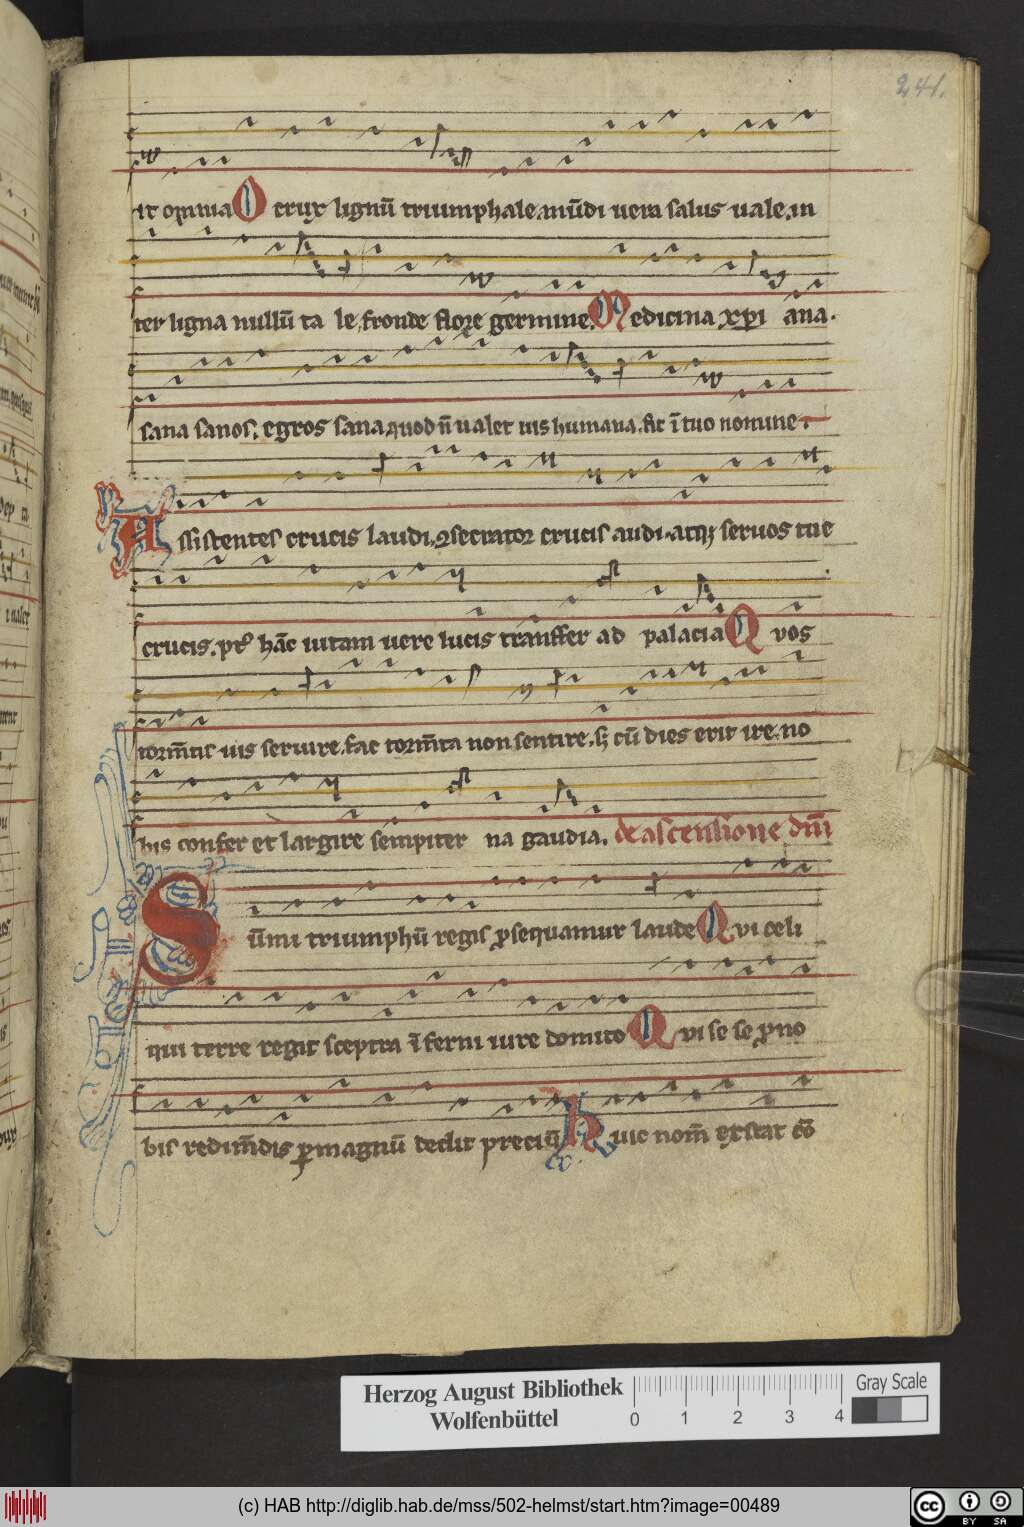 241.
it omnia O crux lignū triumphale. mūdi uera salus uale. in
ter ligna nullū ta le. fronde flore germine. Medicina xpi ana.
sana sanos. egros sana quod n̄ ualet uis humana. fit ī tuo nomine.
Assistentes crucis laudi. ꝯsecrator crucis audi. atqꝫ seruos tue
crucis. pꝰ hāc uitam uere lucis transfer ad palacia Quos
torm̄tis uis seruire. fac torm̄ta non sentire. s; cū dies erit ire. no
bis confer et largire sempiter na gaudia. de ascensione dn̄i
Sūmi triumphū regis ꝓsequamur laude Qui celi
qui terre regit sceptra īferni iure domito Qui se se ꝓ no
bis redim̄dis ꝑmagnū dedit preciū Huic nom̄ extat cō
Herzog August Bibliothek
Wolfenbüttel
0 1 2 3 4
Gray Scale
(c) HAB http://diglib.hab.de/mss/502-helmst/start.htm?image=00489
cc BY SA